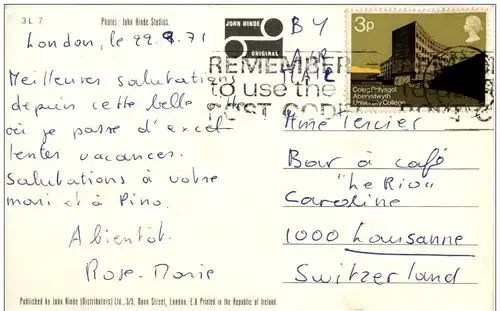 3 L 7
Photos: John Hinde Studios.
JOHN HINDE
ORIGINAL
London, le 22.9.71
Meilleures salutations
depuis cette belle ville
où je passe d'excel
lentes vacances.
Salutations à votre
mari et à Pino.
A bientôt.
Rose-Marie
BY
AIR
MAIL
3p
Coleg Prifysgol
Aberystwyth
University College
REMEMBER
to use the
POST CODE
Mme Tercier
Bar à café
"Le Rio"
Caroline
1000 Lausanne
Switzerland
Published by John Hinde (Distributors) Ltd., 3/5, Dunn Street, London. E.8. Printed in the Republic of Ireland.